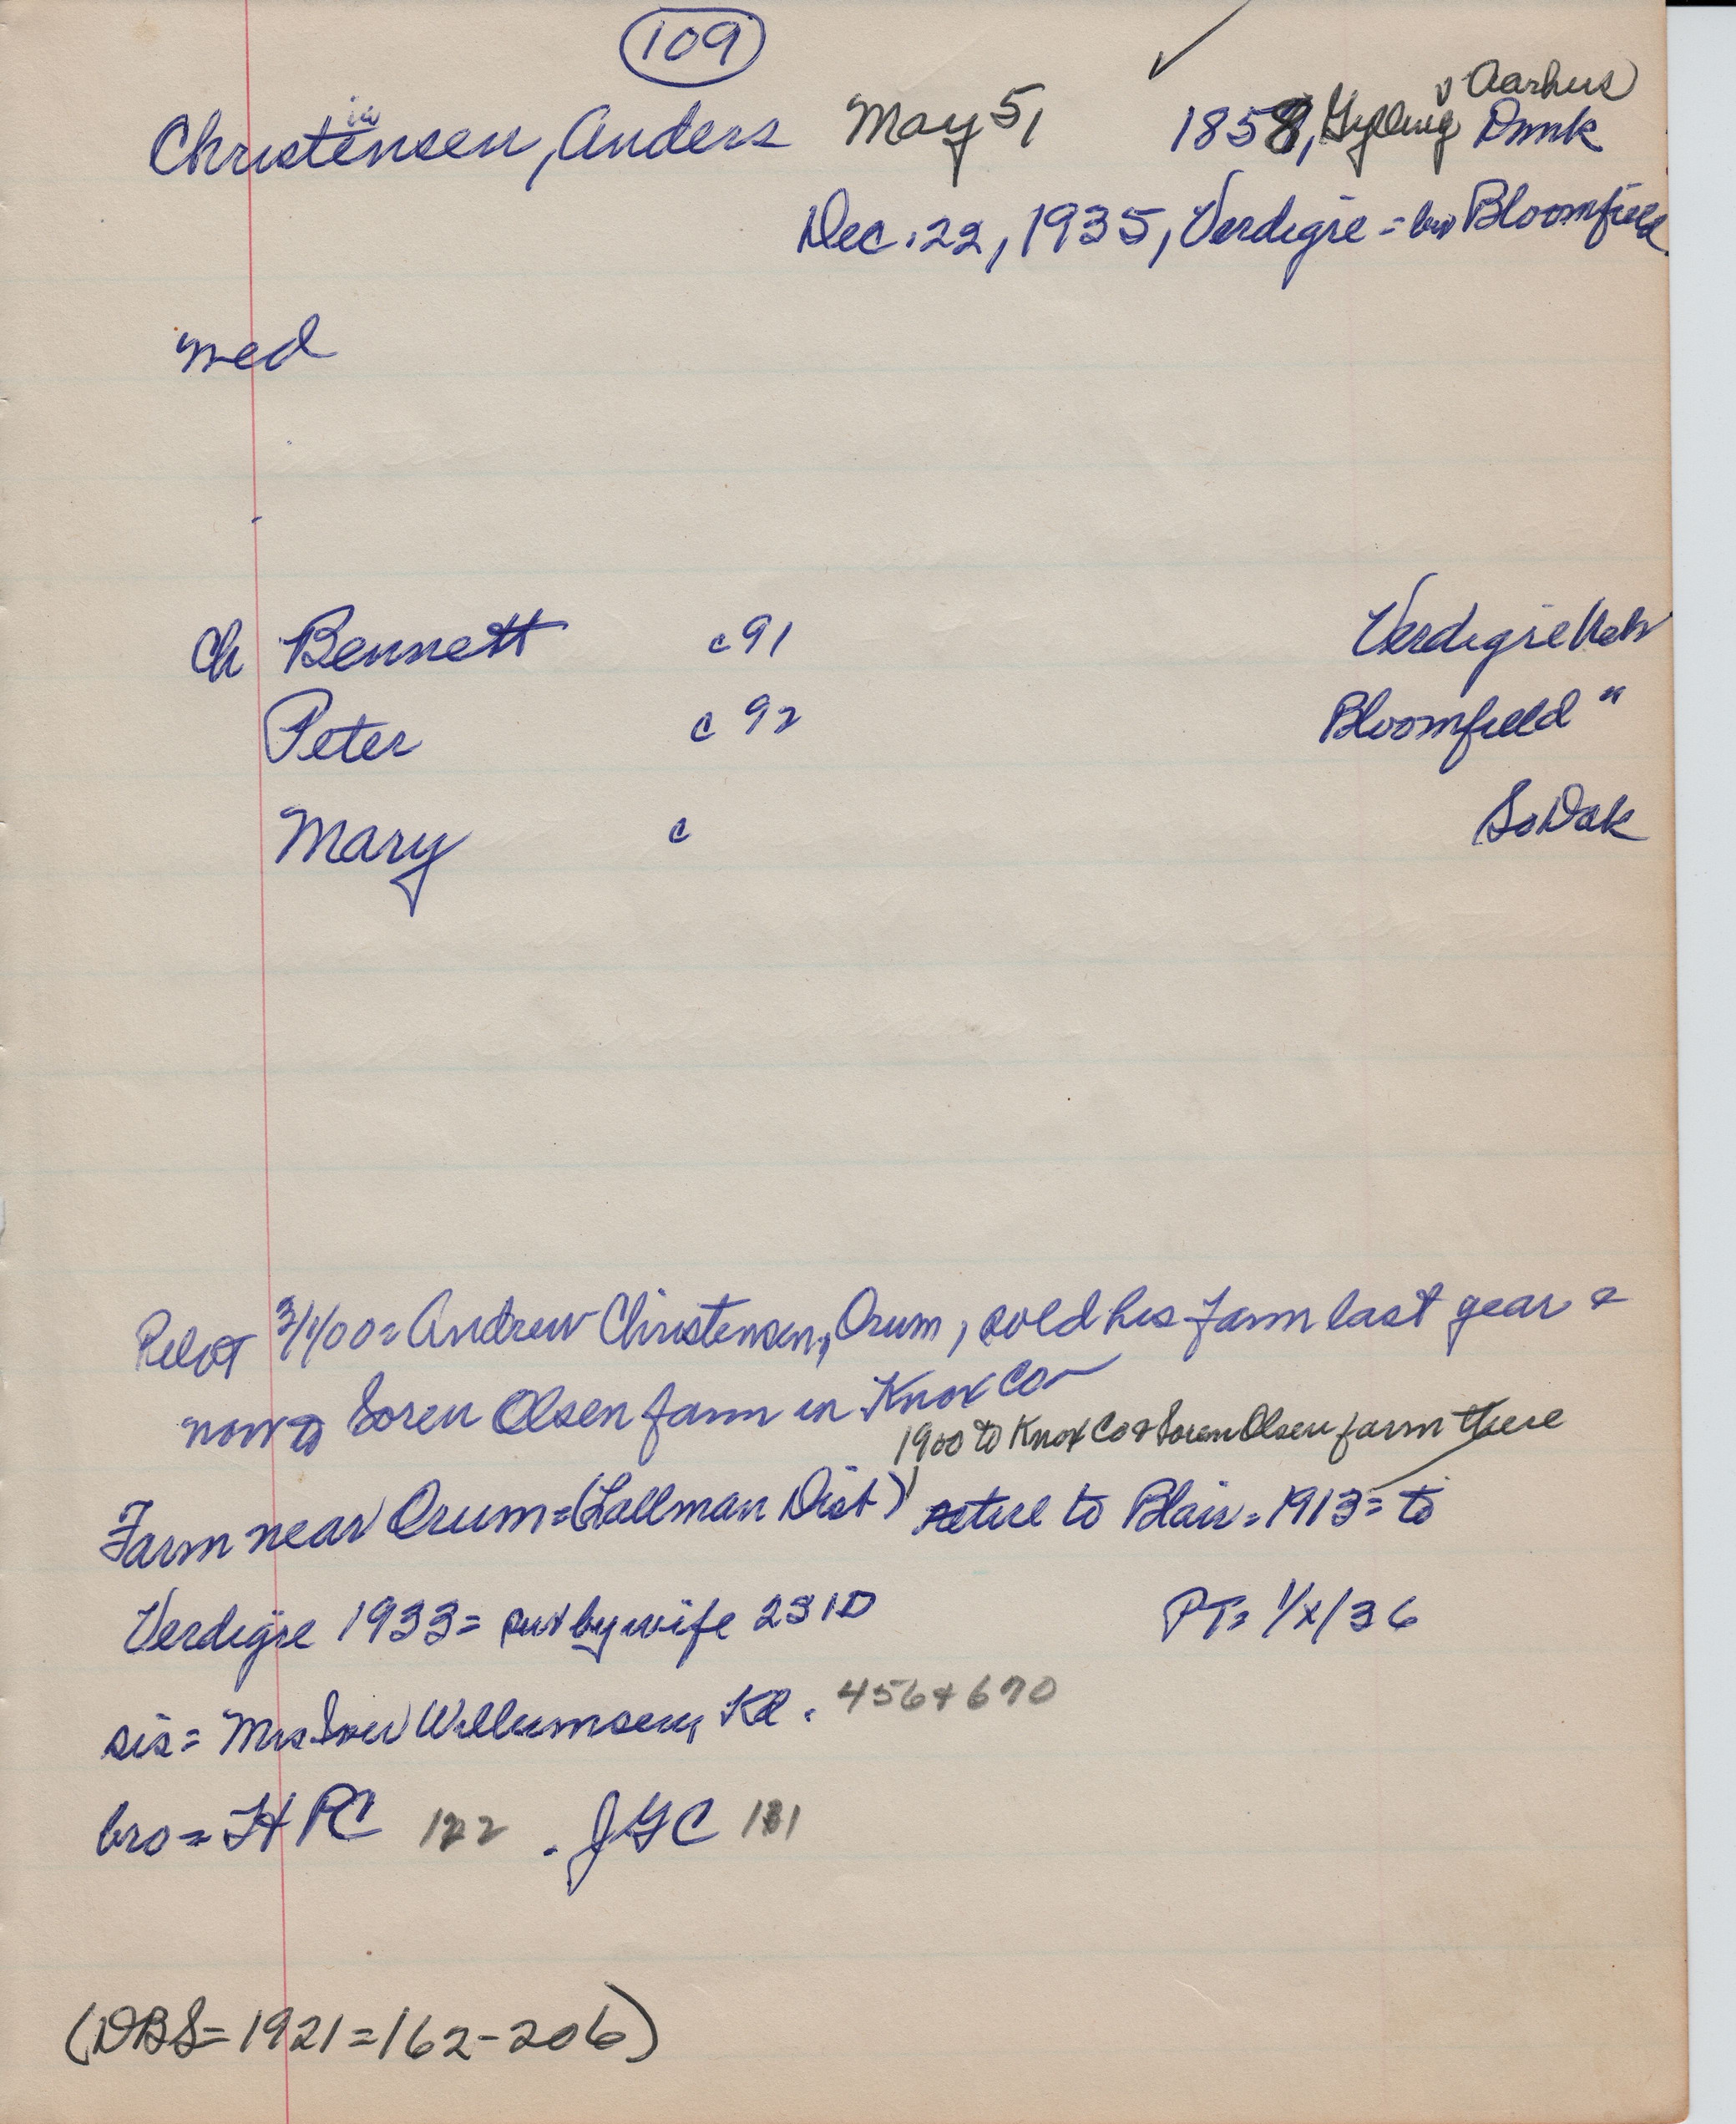 109
Aarhus
ia
Christensen, Anders May 5, 1858, Gylling Dnmk
Dec. 22, 1935, Verdigre = bur Bloomfield
med
ch Bennett c 91 Verdigre Neb
Peter c 92 Bloomfield "
Mary c So Dak
Pilot 3/1/00 = Andrew Christensen, Orum, sold his farm last year &
now to Soren Olsen farm in Knox Co
1900 to Knox Co & Soren Olsen farm there
Farm near Orum = (Lallman Dist) retire to Blair = 1913 = to
Verdigre 1933 = sur by wife 2 S 1 D PT = 1/x/36
sis = Mrs Willumsen, Kd. 456 + 670
bro = H P C 122 . J G C 181
(DBS = 1921 = 162 - 206)